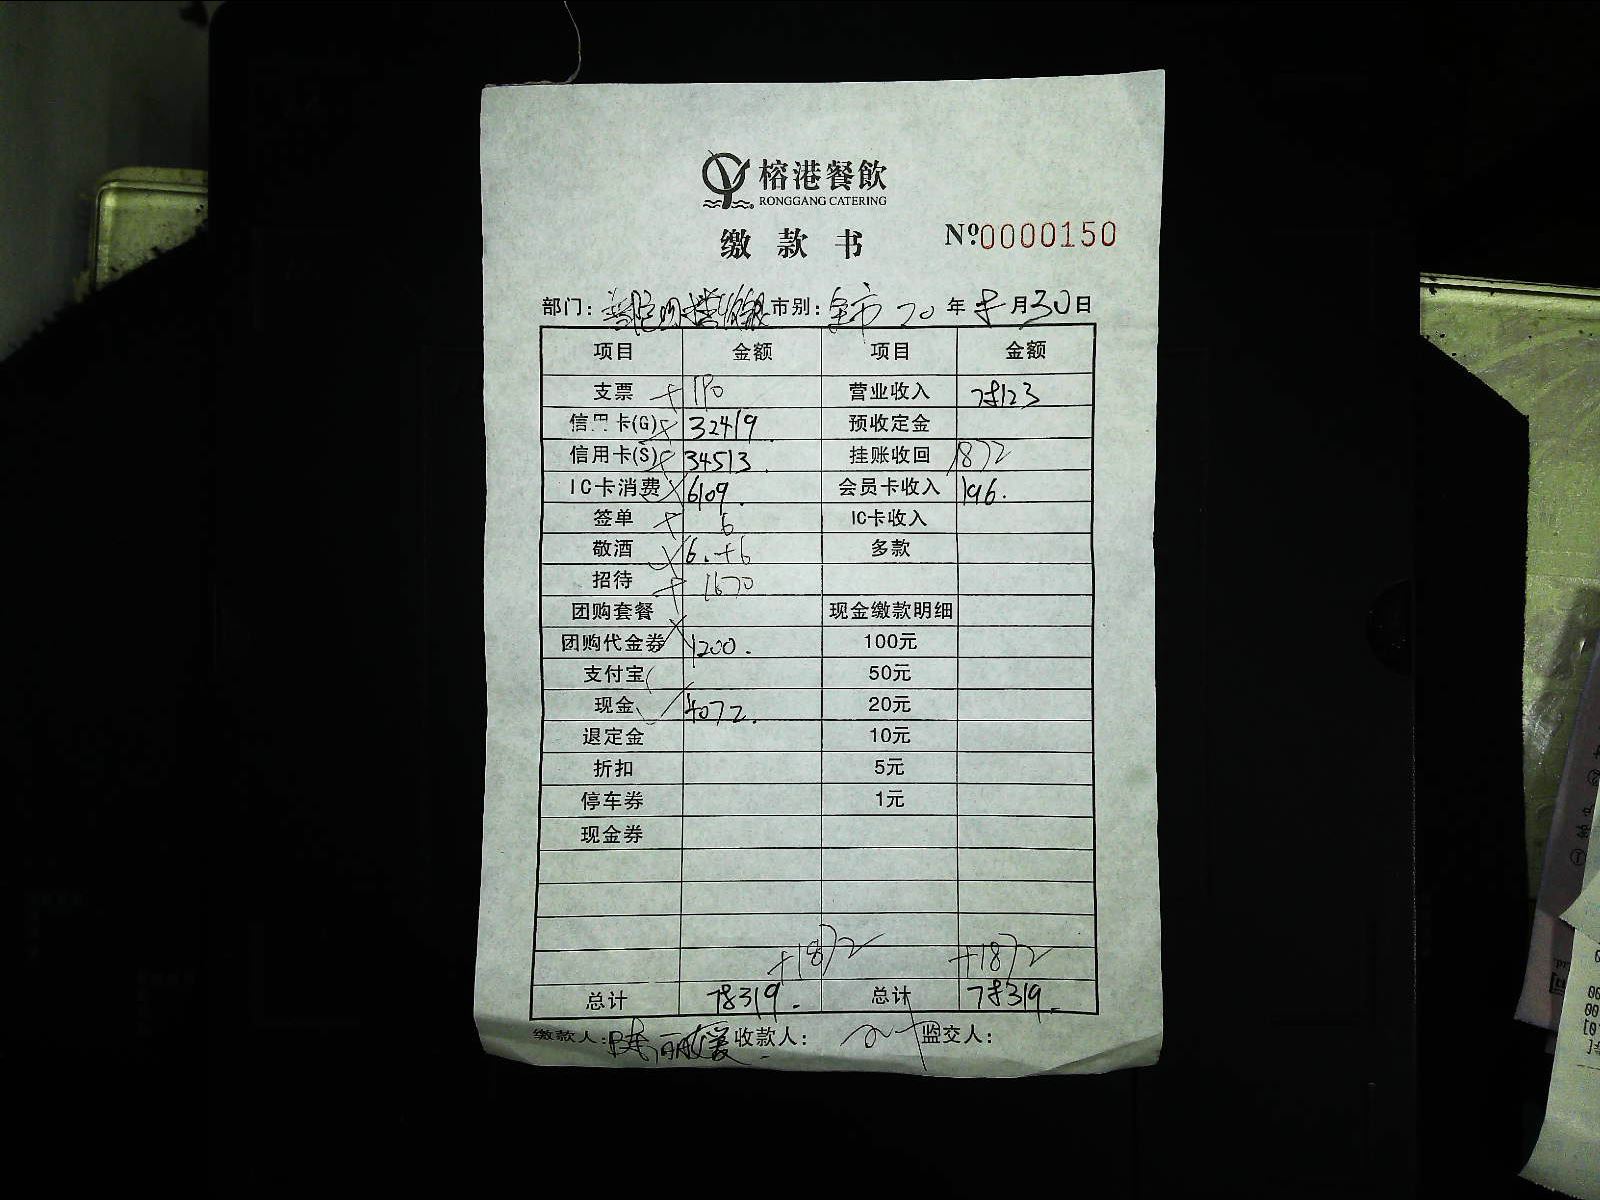 榕港餐飲
RONGGANG CATERING
缴款书 №0000150
部门： 市别：全市 20年8月30日
项目 金额 项目 金额
支票 + 190 营业收入 78123
信用卡(G) + 32419 预收定金
信用卡(S) + 34513. 挂账收回 1872
IC卡消费 6109. 会员卡收入 196.
签单 + 6 IC卡收入
敬酒 多款
招待 + 1670
团购套餐 现金缴款明细
团购代金券 1200. 100元
支付宝 50元
现金 4072. 20元
退定金 10元
折扣 5元
停车券 1元
现金券
+1872 +1872
总计 78319. 总计 78319.
缴款人： 收款人： 监交人：